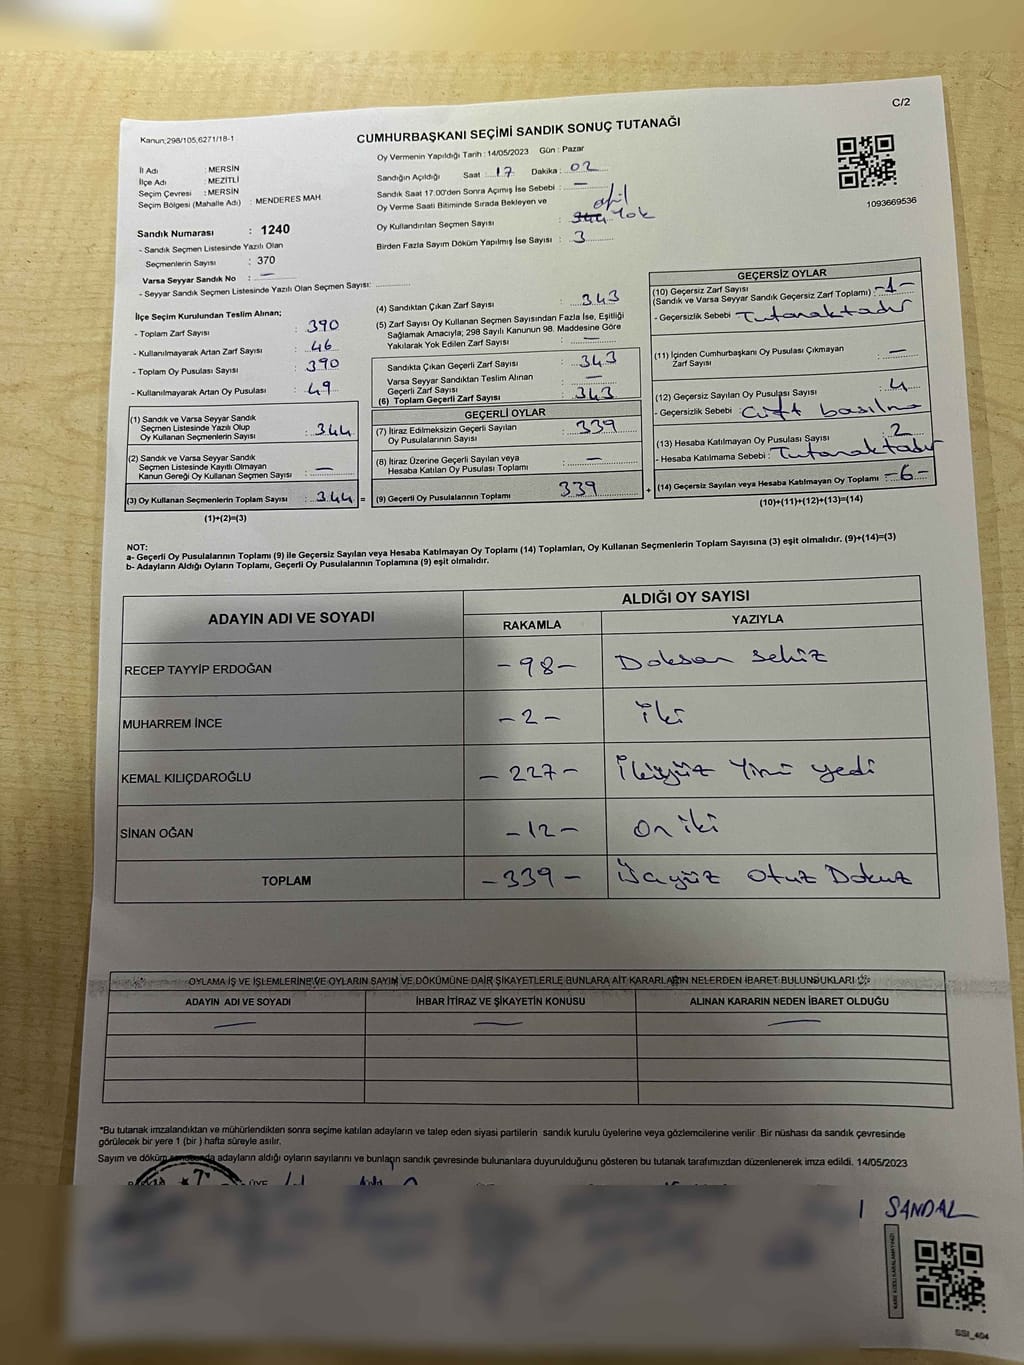 C/2
Kanun;298/105,6271/18-1
CUMHURBAŞKANI SEÇİMİ SANDIK SONUÇ TUTANAĞI
İl Adı : MERSİN
İlçe Adı : MEZİTLİ
Seçim Çevresi : MERSİN
Seçim Bölgesi (Mahalle Adı) : MENDERES MAH
Sandık Numarası : 1240
- Sandık Seçmen Listesinde Yazılı Olan
Seçmenlerin Sayısı : 370
Varsa Seyyar Sandık No : —
- Seyyar Sandık Seçmen Listesinde Yazılı Olan Seçmen Sayısı:
Oy Vermenin Yapıldığı Tarih : 14/05/2023 Gün : Pazar
Sandığın Açıldığı Saat : 17 Dakika : 02
Sandık Saat 17.00'den Sonra Açımış İse Sebebi : —
Oy Verme Saati Bitiminde Sırada Bekleyen ve
Oy Kullandırılan Seçmen Sayısı : Yok
Birden Fazla Sayım Döküm Yapılmış İse Sayısı : 3
1093669536
İlçe Seçim Kurulundan Teslim Alınan;
- Toplam Zarf Sayısı : 390
- Kullanılmayarak Artan Zarf Sayısı : 46
- Toplam Oy Pusulası Sayısı : 390
- Kullanılmayarak Artan Oy Pusulası : 49
(1) Sandık ve Varsa Seyyar Sandık
Seçmen Listesinde Yazılı Olup
Oy Kullanan Seçmenlerin Sayısı : 344
(2) Sandık ve Varsa Seyyar Sandık
Seçmen Listesinde Kayıtlı Olmayan
Kanun Gereği Oy Kullanan Seçmen Sayısı : —
(3) Oy Kullanan Seçmenlerin Toplam Sayısı : 344 =
(1)+(2)=(3)
(4) Sandıktan Çıkan Zarf Sayısı : 343
(5) Zarf Sayısı Oy Kullanan Seçmen Sayısından Fazla İse, Eşitliği
Sağlamak Amacıyla; 298 Sayılı Kanunun 98. Maddesine Göre
Yakılarak Yok Edilen Zarf Sayısı : —
Sandıkta Çıkan Geçerli Zarf Sayısı : 343
Varsa Seyyar Sandıktan Teslim Alınan
Geçerli Zarf Sayısı : —
(6) Toplam Geçerli Zarf Sayısı : 343
GEÇERLİ OYLAR
(7) İtiraz Edilmeksizin Geçerli Sayılan
Oy Pusulalarının Sayısı : 339
(8) İtiraz Üzerine Geçerli Sayılan veya
Hesaba Katılan Oy Pusulası Toplamı : —
(9) Geçerli Oy Pusulalarının Toplamı 339 +
GEÇERSİZ OYLAR
(10) Geçersiz Zarf Sayısı
(Sandık ve Varsa Seyyar Sandık Geçersiz Zarf Toplamı) : -1-
- Geçersizlik Sebebi : Tutanaktadır
(11) İçinden Cumhurbaşkanı Oy Pusulası Çıkmayan
Zarf Sayısı : —
(12) Geçersiz Sayılan Oy Pusulası Sayısı : 4
- Geçersizlik Sebebi : Çift basılma
(13) Hesaba Katılmayan Oy Pusulası Sayısı : 2
- Hesaba Katılmama Sebebi : Tutanaktadır
(14) Geçersiz Sayılan veya Hesaba Katılmayan Oy Toplamı : -6-
(10)+(11)+(12)+(13)=(14)
NOT:
a- Geçerli Oy Pusulalarının Toplamı (9) ile Geçersiz Sayılan veya Hesaba Katılmayan Oy Toplamı (14) Toplamları, Oy Kullanan Seçmenlerin Toplam Sayısına (3) eşit olmalıdır. (9)+(14)=(3)
b- Adayların Aldığı Oyların Toplamı, Geçerli Oy Pusulalarının Toplamına (9) eşit olmalıdır.
ADAYIN ADI VE SOYADI ALDIĞI OY SAYISI
RAKAMLA YAZIYLA
RECEP TAYYİP ERDOĞAN -98- Doksan sekiz
MUHARREM İNCE -2- İki
KEMAL KILIÇDAROĞLU -227- İkiyüz Yirmi yedi
SİNAN OĞAN -12- On iki
TOPLAM -339- Üçyüz Otuz Dokuz
OYLAMA İŞ VE İŞLEMLERİNE VE OYLARIN SAYIM VE DÖKÜMÜNE DAİR ŞİKAYETLERLE BUNLARA AİT KARARLARIN NELERDEN İBARET BULUNDUKLARI
ADAYIN ADI VE SOYADI İHBAR İTİRAZ VE ŞİKAYETİN KONUSU ALINAN KARARIN NEDEN İBARET OLDUĞU
— — —
*Bu tutanak imzalandıktan ve mühürlendikten sonra seçime katılan adayların ve talep eden siyasi partilerin sandık kurulu üyelerine veya gözlemcilerine verilir. Bir nüshası da sandık çevresinde
görülecek bir yere 1 (bir) hafta süreyle asılır.
Sayım ve döküm sonucunda adayların aldığı oyların sayılarını ve bunların sandık çevresinde bulunanlara duyurulduğunu gösteren bu tutanak tarafımızdan düzenlenerek imza edildi. 14/05/2023
ÜYE
SANDAL
SSI_404